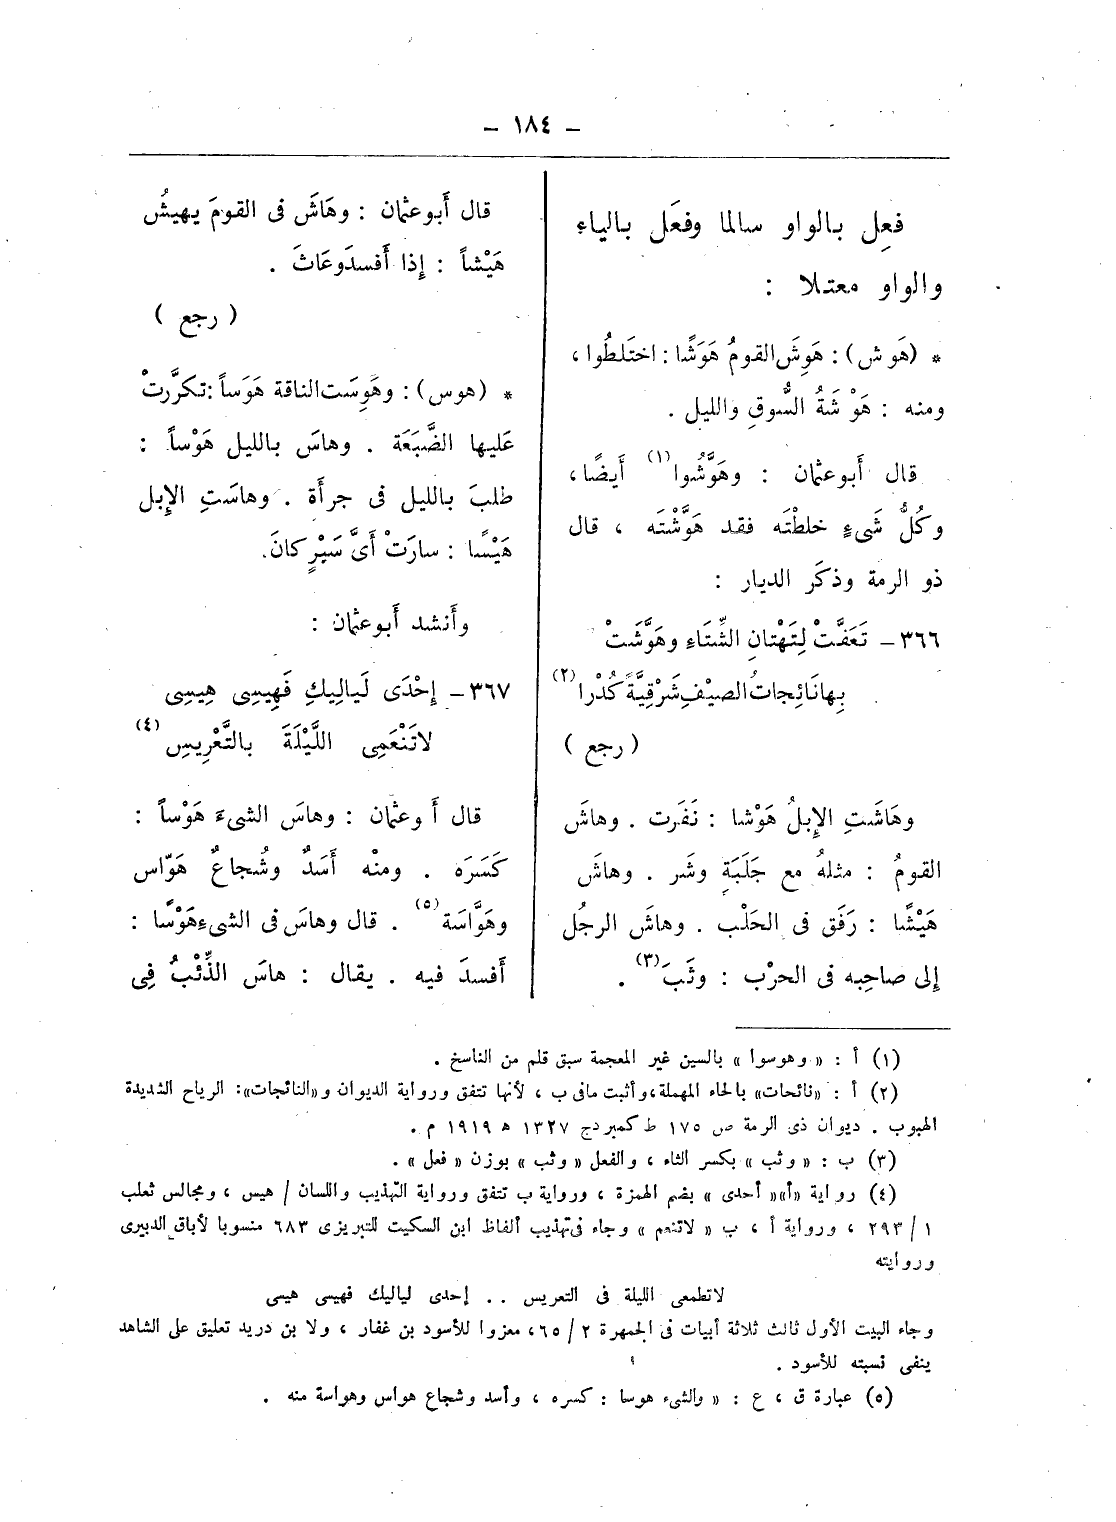 – ١٨٤ –
فعِل بالواو سالما وفعَل بالياء
والواو معتلا :
* (هَوش) : هَوِشَ القومُ هَوَشًا : اختَلطُوا ،
ومنه : هَوْشَةُ السُّوقِ والليل .
قال أَبوعثمان : وهَوَّشُوا (١) أَيضًا ،
وكُلُّ شَىءٍ خلطْتَه فقد هَوَّشْتَه ، قال
ذو الرمة وذكَر الديار :
٣٦٦ – تَعَفَّتْ لِتَهْتانِ الشِّتَاءِ وهَوَّشَتْ
بِها نَائِجاتُ الصيْفِ شَرْقِيَّةً كُدْرا (٢)
( رجع )
وهَاشَتِ الإِبلُ هَوْشا : نَفَرت . وهاشَ
القومُ : مثلهُ مع جَلَبَةٍ وشَر . وهاشَ
هَيْشًا : رَفَق فى الحَلْب . وهاشَ الرجُل
إِلى صاحِبه فى الحرْب : وثَبَ (٣) .
قال أَبوعثمان : وهَاشَ فى القومَ يهيشُ
هَيْشاً : إِذا أَفسدَوعَاثَ .
( رجع )
* (هوس) : وهَوِسَت الناقة هَوَساً : تكرَّرتْ
عَليها الضَّبَعَة . وهاسَ بالليل هَوْساً :
طلبَ بالليل فى جرأَة . وهاسَتِ الإِبل
هَيْسًا : سارَتْ أَىَّ سَيْرٍ كانَ .
وأَنشد أَبوعثمان :
٣٦٧ – إِحْدَى لَيالِيكِ فَهِيسِى هِيسِى
لاتَنْعَمِى اللَّيْلَةَ بالتَّعْرِيسِ (٤)
قال أَ وعثمان : وهاسَ الشىءَ هَوْساً :
كَسَرَه . ومنْه أَسَدٌ وشُجاعٌ هَوّاس
وهَوَّاسَة (٥) . قال وهاسَ فى الشىءِ هَوْسًا :
أَفسدَ فيه . يقال : هاسَ الذِّئْبُ فِى
(١) أ : « وهوسوا » بالسين غير المعجمة سبق قلم من الناسخ .
(٢) أ : «نائحات» بالحاء المهملة ، وأثبت مافى ب ، لأنها تتفق ورواية الديوان و«النائجات»: الرياح الشديدة
الهبوب . ديوان ذى الرمة ص ١٧٥ ط كمبردج ١٣٢٧ ه ١٩١٩ م .
(٣) ب : « وثب » بكسر الثاء ، والفعل « وثب » بوزن « فعل » .
(٤) رواية «أ» « أحدى » بضم الهمزة ، ورواية ب تتفق ورواية التهذيب واللسان / هيس ، ومجالس ثعلب
١ / ٢٩٣ ، ورواية أ ، ب « لاتنعم » وجاء فى تهذيب ألفاظ ابن السكيت للتبريزى ٦٨٣ منسوبا لأباق الدبيرى
وروايته
لاتطمعى الليلة فى التعريس . . إحدى لياليك فهيسى هيسى
وجاء البيت الأول ثالث ثلاثة أبيات فى الجمهرة ٢ / ٦٥ ، معزوا للأسود بن غفار ، ولا بن دريد تعليق على الشاهد
ينفى نسبته للأسود .
(٥) عبارة ق ، ع : « والشىء هوسا : كسره ، وأسد وشجاع هواس وهواسة منه .